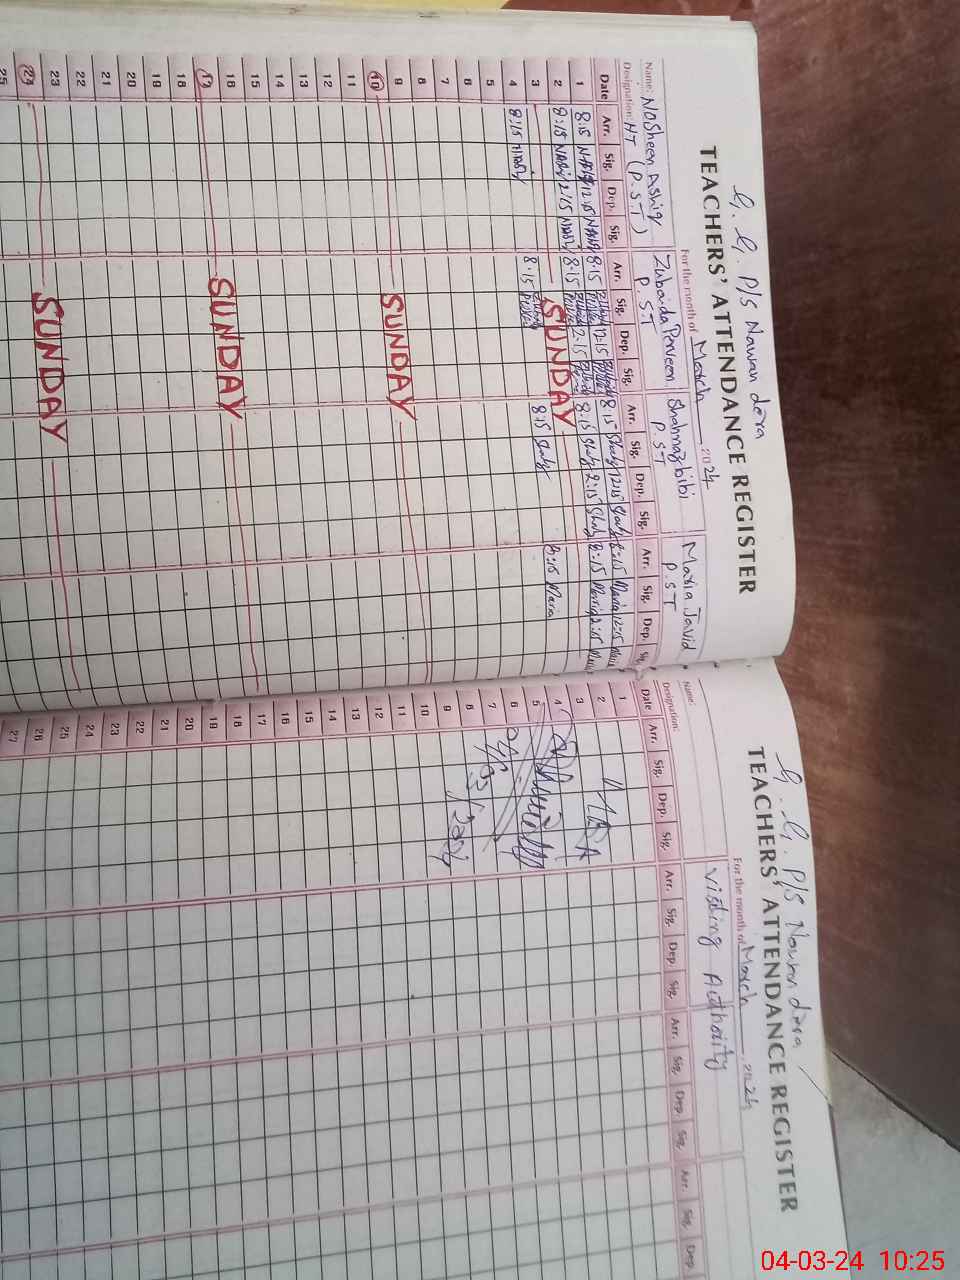 G. G. P/S Nawan dera
TEACHERS' ATTENDANCE REGISTER
For the month of March 2024
Name: NOSheen Ashiq Zubaida Perveen Shahnaz bibi Maria Javid
Designation: HT (P.S.T) P.S.T P.ST P.ST
Date Arr. Sig. Dep. Sig. Arr. Sig. Dep. Sig. Arr. Sig. Dep. Sig. Arr. Sig. Dep. Sig.
1 8:15 12:15 8:15 12:15 8:15 12:15 8:15 Maria 12:15
2 8:15 2:15 8:15 2:15 8:15 2:15 8:15 2:15
3 SUNDAY
4 8:15 8:15 8:15 8:15 Maria
5
6
7
8
9
10 SUNDAY
11
12
13
14
15
16
17 SUNDAY
18
19
20
21
22
23
24 SUNDAY
25
G. G. P/S Nawan dera
TEACHERS' ATTENDANCE REGISTER
For the month of March, 2024
Name:
Visting Authority
Designation:
Date Arr. Sig. Dep. Sig. Arr. Sig. Dep. Sig. Arr. Sig. Dep. Sig. Arr. Sig. Dep.
1
2
3
4
5
6
7
8
9
10
11
12
13
14
15
16
17
18
19
20
21
22
23
24
25
26
27
04-03-24 10:25